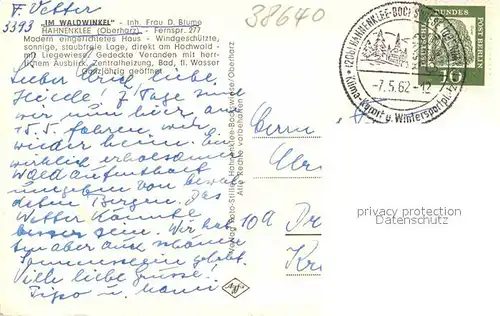 F. Vetter
3393
38640
"IM WALDWINKEL" - Inh. Frau D. Blume
HAHNENKLEE (Oberharz) - Fernspr. 277
Modern eingerichtetes Haus - Windgeschützte,
sonnige, staubfreie Lage, direkt am Hochwald -
Liegewiese - Gedeckte Veranden mit herr-
lichem Ausblick, Zentralheizung, Bad, fl. Wasser
Ganzjährig geöffnet
Lieber Erich, liebe
Heide! 7 Tage sind
wir nun hier am
15.5. fahren wir
wieder heim. Ein
wirklich erholsamer
Waldaufenthalt
umgeben von bewal-
deten Bergen. Das
Wetter könnte
besser sein. Wir hat-
ten aber auch schönen
Sonnenschein gehabt.
Viele liebe Grüsse!
u.
Verlag Foto-Stille, Hahnenklee-Bockswiese/Oberharz
Alle Rechte vorbehalten
(20b) HAHNENKLEE-BOCKSWIESE
-7.5.62-12
Klima-Kurort u. Wintersportplatz
DEUTSCHE BUNDESPOST BERLIN
10
Herrn
10a
privacy protection
Datenschutz